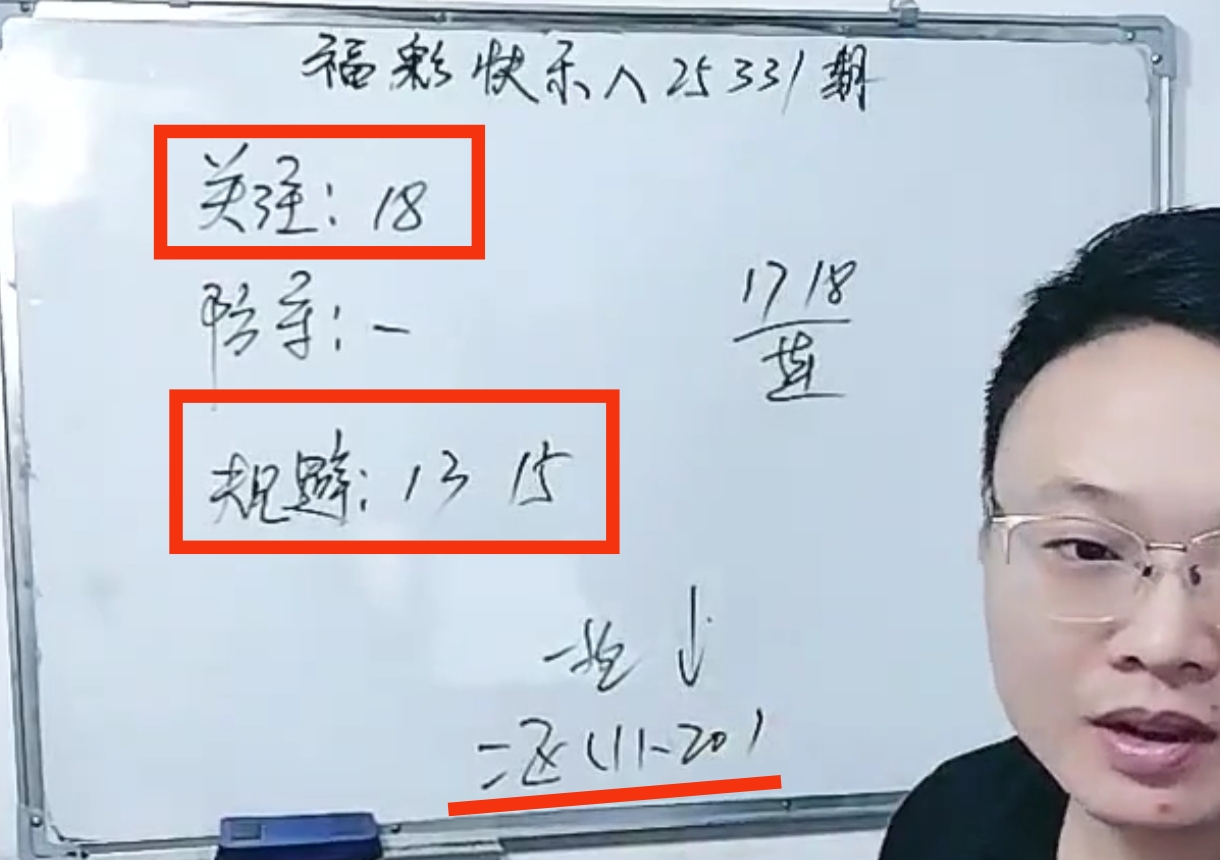 福彩快乐八25331期
关注: 18
防守: 一
17 18
连
规避: 13 15
一挖↓
二区(11-20)